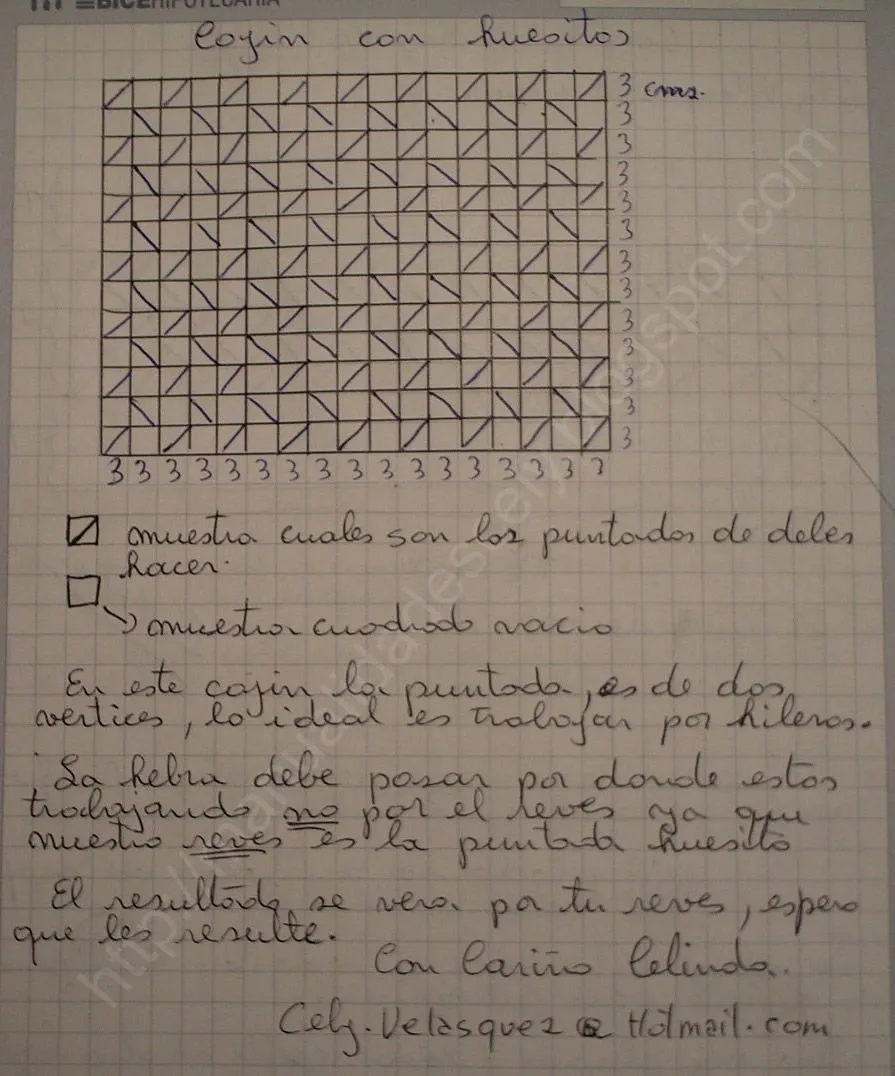 BICEHIPOTECARIA
Cojin con huesitos
3 cms.
3
3
3
3
3
3
3
3
3
3
3
3
3 3 3 3 3 3 3 3 3 3 3 3 3 3 3 3 3
muestra cuales son los puntados de debes
hacer.
muestra cuadrado vacio
En este cojin la puntada, es de dos
vertices, lo ideal es trabajar por hileras.
La hebra debe pasar por donde estas
trabajando no por el reves ya que
nuestro reves es la puntada huesito
El resultado se vera por tu reves, espero
que les resulte.
Con Cariño Celinda.
Cely.Velasquez@Hotmail.com